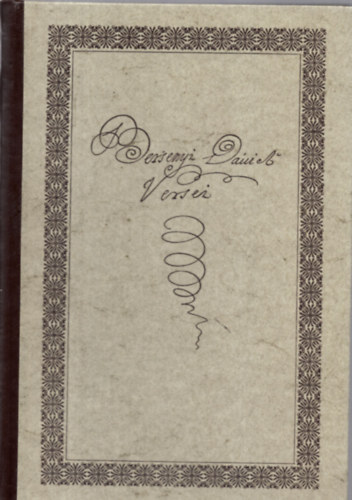 Bersenyi Dániel
Versei